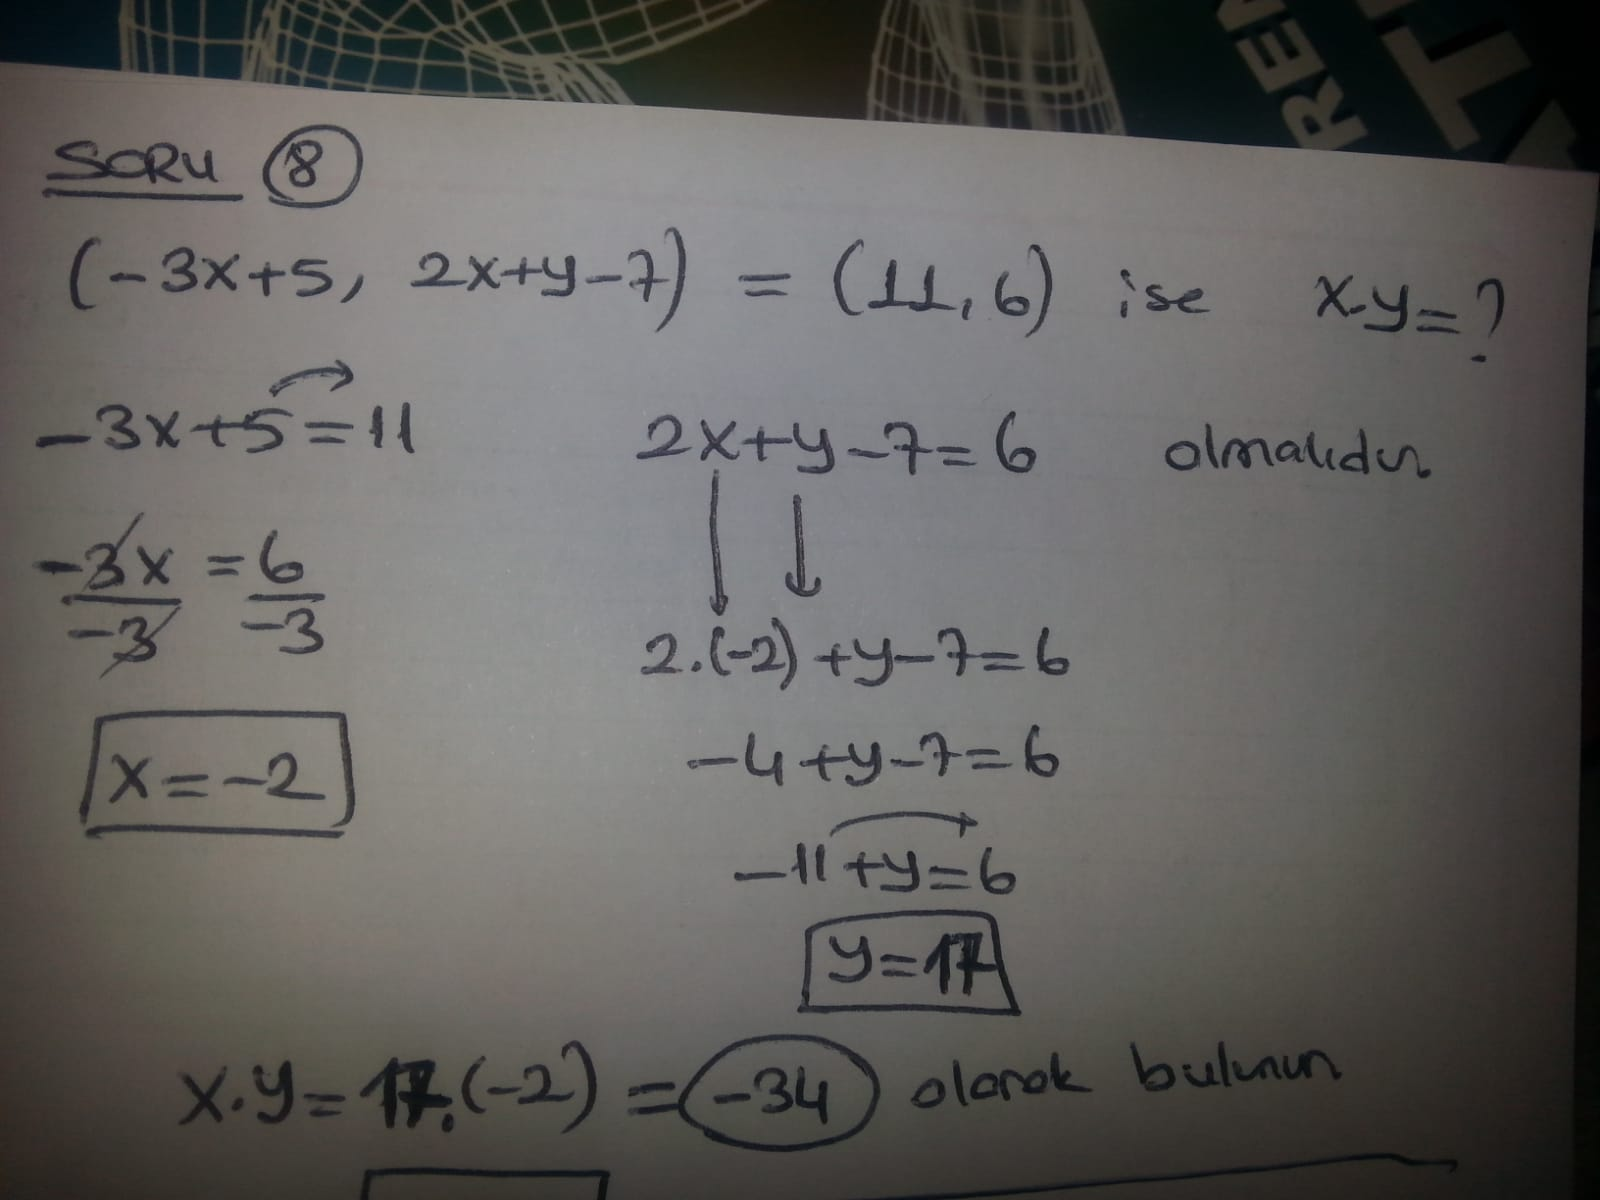 REN
ATT
SORU 8
(-3x+5, 2x+y-7) = (11,6) ise x.y=?
-3x+5=11
2x+y-7=6 olmalıdır
-3x/-3 = 6/-3
2.(-2)+y-7=6
x=-2
-4+y-7=6
-11+y=6
y=17
x.y=17.(-2)=-34 olarak bulunur